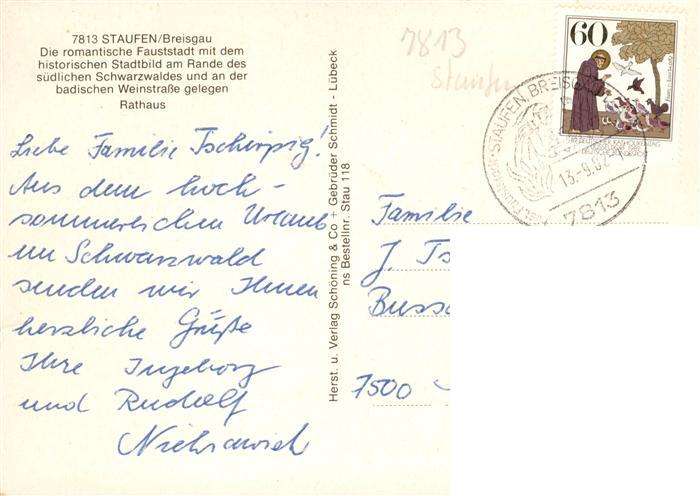 7813 STAUFEN/Breisgau
Die romantische Fauststadt mit dem
historischen Stadtbild am Rande des
südlichen Schwarzwaldes und an der
badischen Weinstraße gelegen
Rathaus
Liebe Familie Tschirpig!
Aus dem hoch-
sommerlichen Urlaub
im Schwarzwald
senden wir Ihnen
herzliche Grüße
Ihre Ingeborg
und Rudolf
Herst. u. Verlag Schöning & Co + Gebrüder Schmidt - Lübeck
ns Bestellnr. Stau 118
7813
Staufen
60
STAUFEN, BREISG
13.-9.82
7813
Familie
J. Ts
Bussc
7500